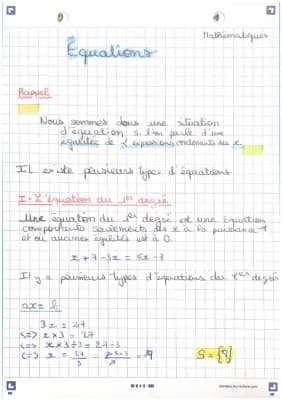 Mathématiques
Équations
Rappel
Nous sommes dans une situation
d'équation si l'on parle d'une
égalités de 2 expressions contenants des x
IL existe plusieurs types d'équations
I - L'équation du 1er degré
Une équation du 1er degré est une équation
comportants seulements des x à la puissance 1
et où aucunes égalités est à 0.
x + 7 - 3x = 5x - 7
Il y a plusieurs types d'équations du 1er degré
ax = b
3x = 27
<=> x × 3 = 27
<=> x × 3 ÷ 3 = 27 ÷ 3
<=> x = 27/3 = = 9
S = {9}